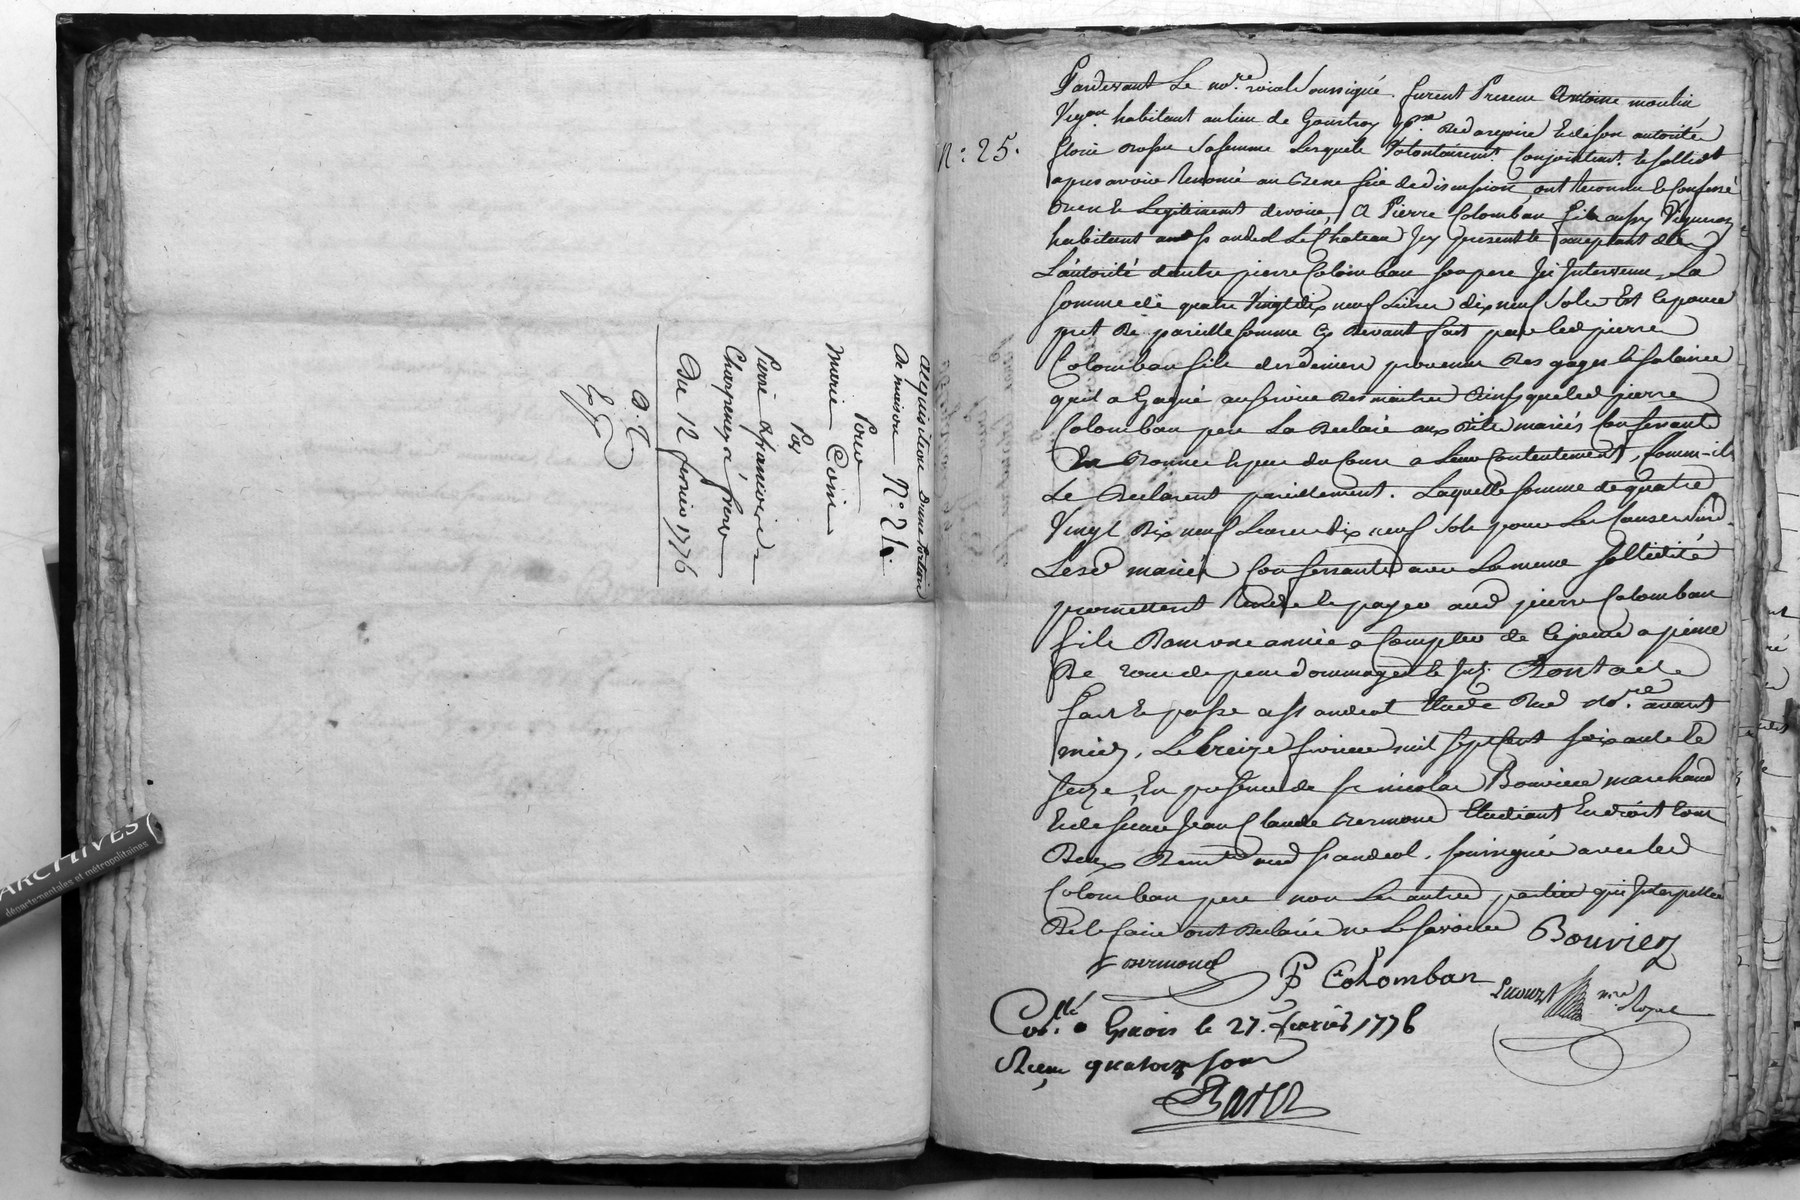 acquis. d'une portion
de maison N.° 24
Pour
Marie
Par
Pierre & françois
frere
Du 12 fevrier 1776
N.° 25.
Pardevant Le no.re roial soussigné. furent Presens Antoine moulin
Vig.on habitant au lieu de p.sse et de son autorité
sa femme Lesquels Volontairem.t Conjointem.t et sollid.t
apres avoir Renoncé au Benefice de discussion, ont reconnu et Confessé
devoir, A Pierre Colomban fils aussy Vigneron
habitant a s.t andeol Le Chateau Icy present et acceptant de
L'autorité d'autre pierre Colomban son pere Ici Intervenu, La
somme de quatre Vingt dix neuf Livres dix neuf sols Et ce pour
pret De pareille somme Cy devant fait par led. pierre
Colomban fils des deniers provenus Des gages et salaires
qu'il a Gagné au service Des maitres Ainsy que led. pierre
Colomban pere La Declaré aux dits mariés Confessants
a Leur Contentement, Comm' ils
Le Declarent pareillement. Laquelle somme de quatre
Vingt Dix neuf Livres dix neuf sols pour Les Causes susd.
Lesd. mariés Confessants avec La meme sollidité
promettent rendre et payer aud. pierre Colomban
fils Dans une année a Compter de ce jour a peine
De tous depens dommages et Int. Dont acte
fait et passé a s.t andeol Etude Dud. No.re avant
midy, Le treize fevrier mil sept Cent soixante et
seize, En presence de s.r nicolas Bouvier marchand
et de sieur Jean Claude Dermond Etudiant En droit tous
Deux Dem.ts aud. s.t andeol. soussignés avec led.
Colomban pere non Les autres parties qui Interpellés
De le faire ont Declaré ne Le savoir
Bouvier
Dermond
P Colomban
n.re Royal
Con.llé a Givors le 27. fevrier 1776
Reçu quatorze sous